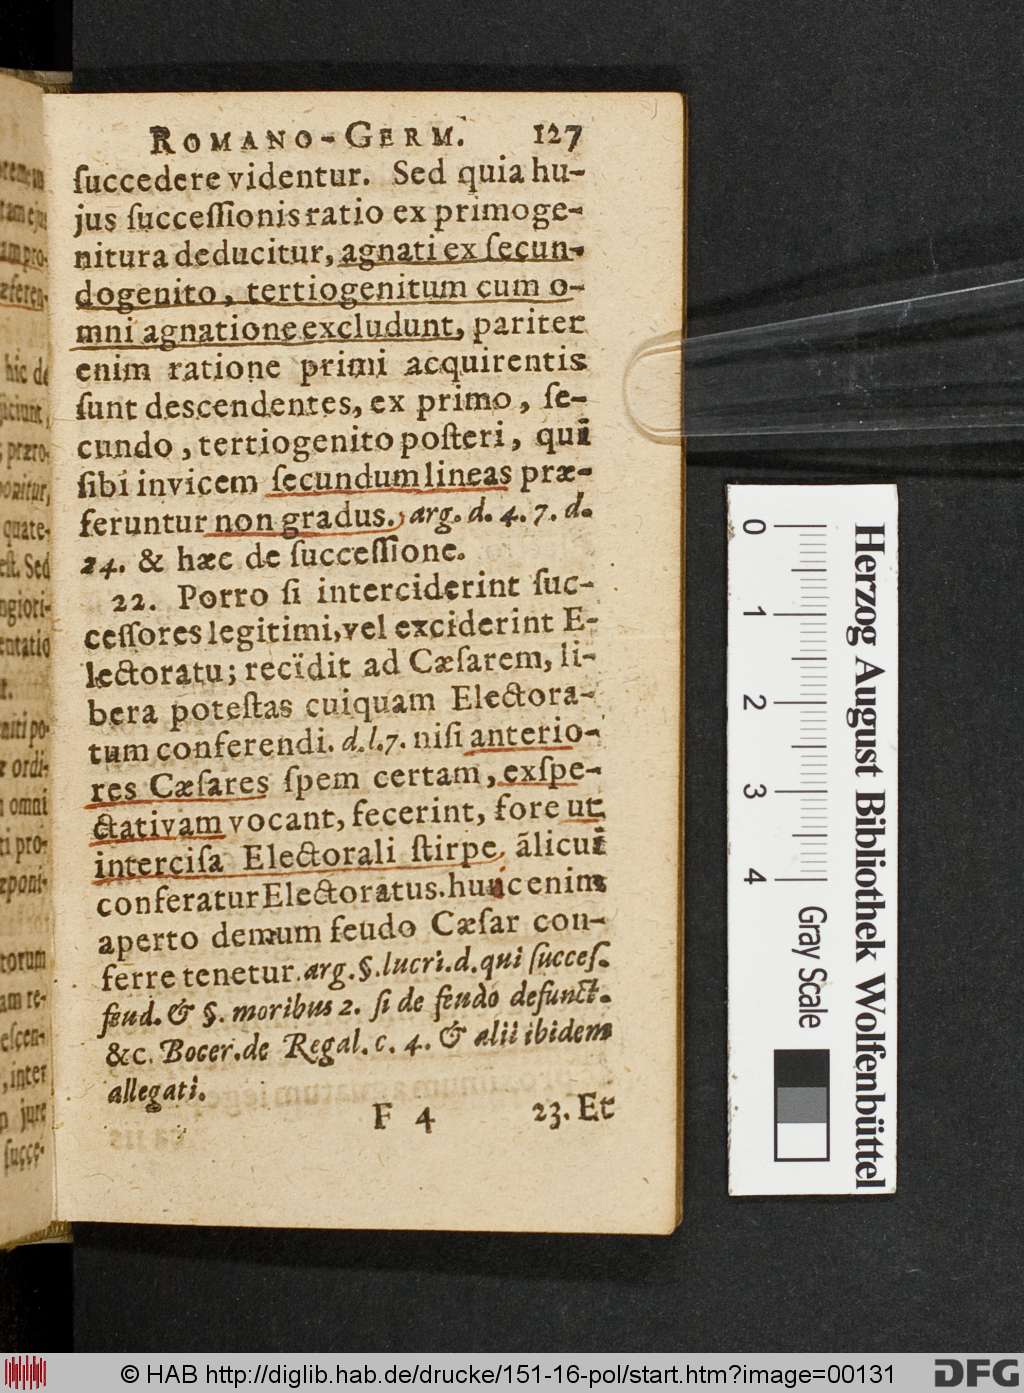 ROMANO-GERM. 127
ſuccedere videntur. Sed quia hu-
jus ſucceſſionis ratio ex primoge-
nitura deducitur, agnati ex ſecun-
dogenito, tertiogenitum cum o-
mni agnatione excludunt, pariter
enim ratione primi acquirentis
ſunt descendentes, ex primo, ſe-
cundo, tertiogenito poſteri, qui
ſibi invicem ſecundum lineas præ-
feruntur non gradus. arg. d. 4. 7. d.
24. & hæc de ſucceſſione.
22. Porro ſi interciderint ſuc-
ceſſores legitimi, vel exciderint E-
lectoratu; recïdit ad Cæſarem, li-
bera poteſtas cuiquam Electora-
tum conferendi. d.l.7. niſi anterio-
res Cæſares ſpem certam, exſpe-
ctativam vocant, fecerint, fore ut
interciſa Electorali ſtirpe, ālicui
conferatur Electoratus. hunc enim
aperto demum feudo Cæſar con-
ferre tenetur. arg. §. lucri. d. qui ſucceſ.
feud. & §. moribus 2. ſi de feudo defunct.
&c. Bocer. de Regal. c. 4. & alii ibidem
allegati.
F 4 23. Et
hic de
quate-
eſt. Sed
omni
, inter
jure
ſucce-
0 1 2 3 4
Gray Scale
Herzog August Bibliothek Wolfenbüttel
© HAB http://diglib.hab.de/drucke/151-16-pol/start.htm?image=00131
DFG